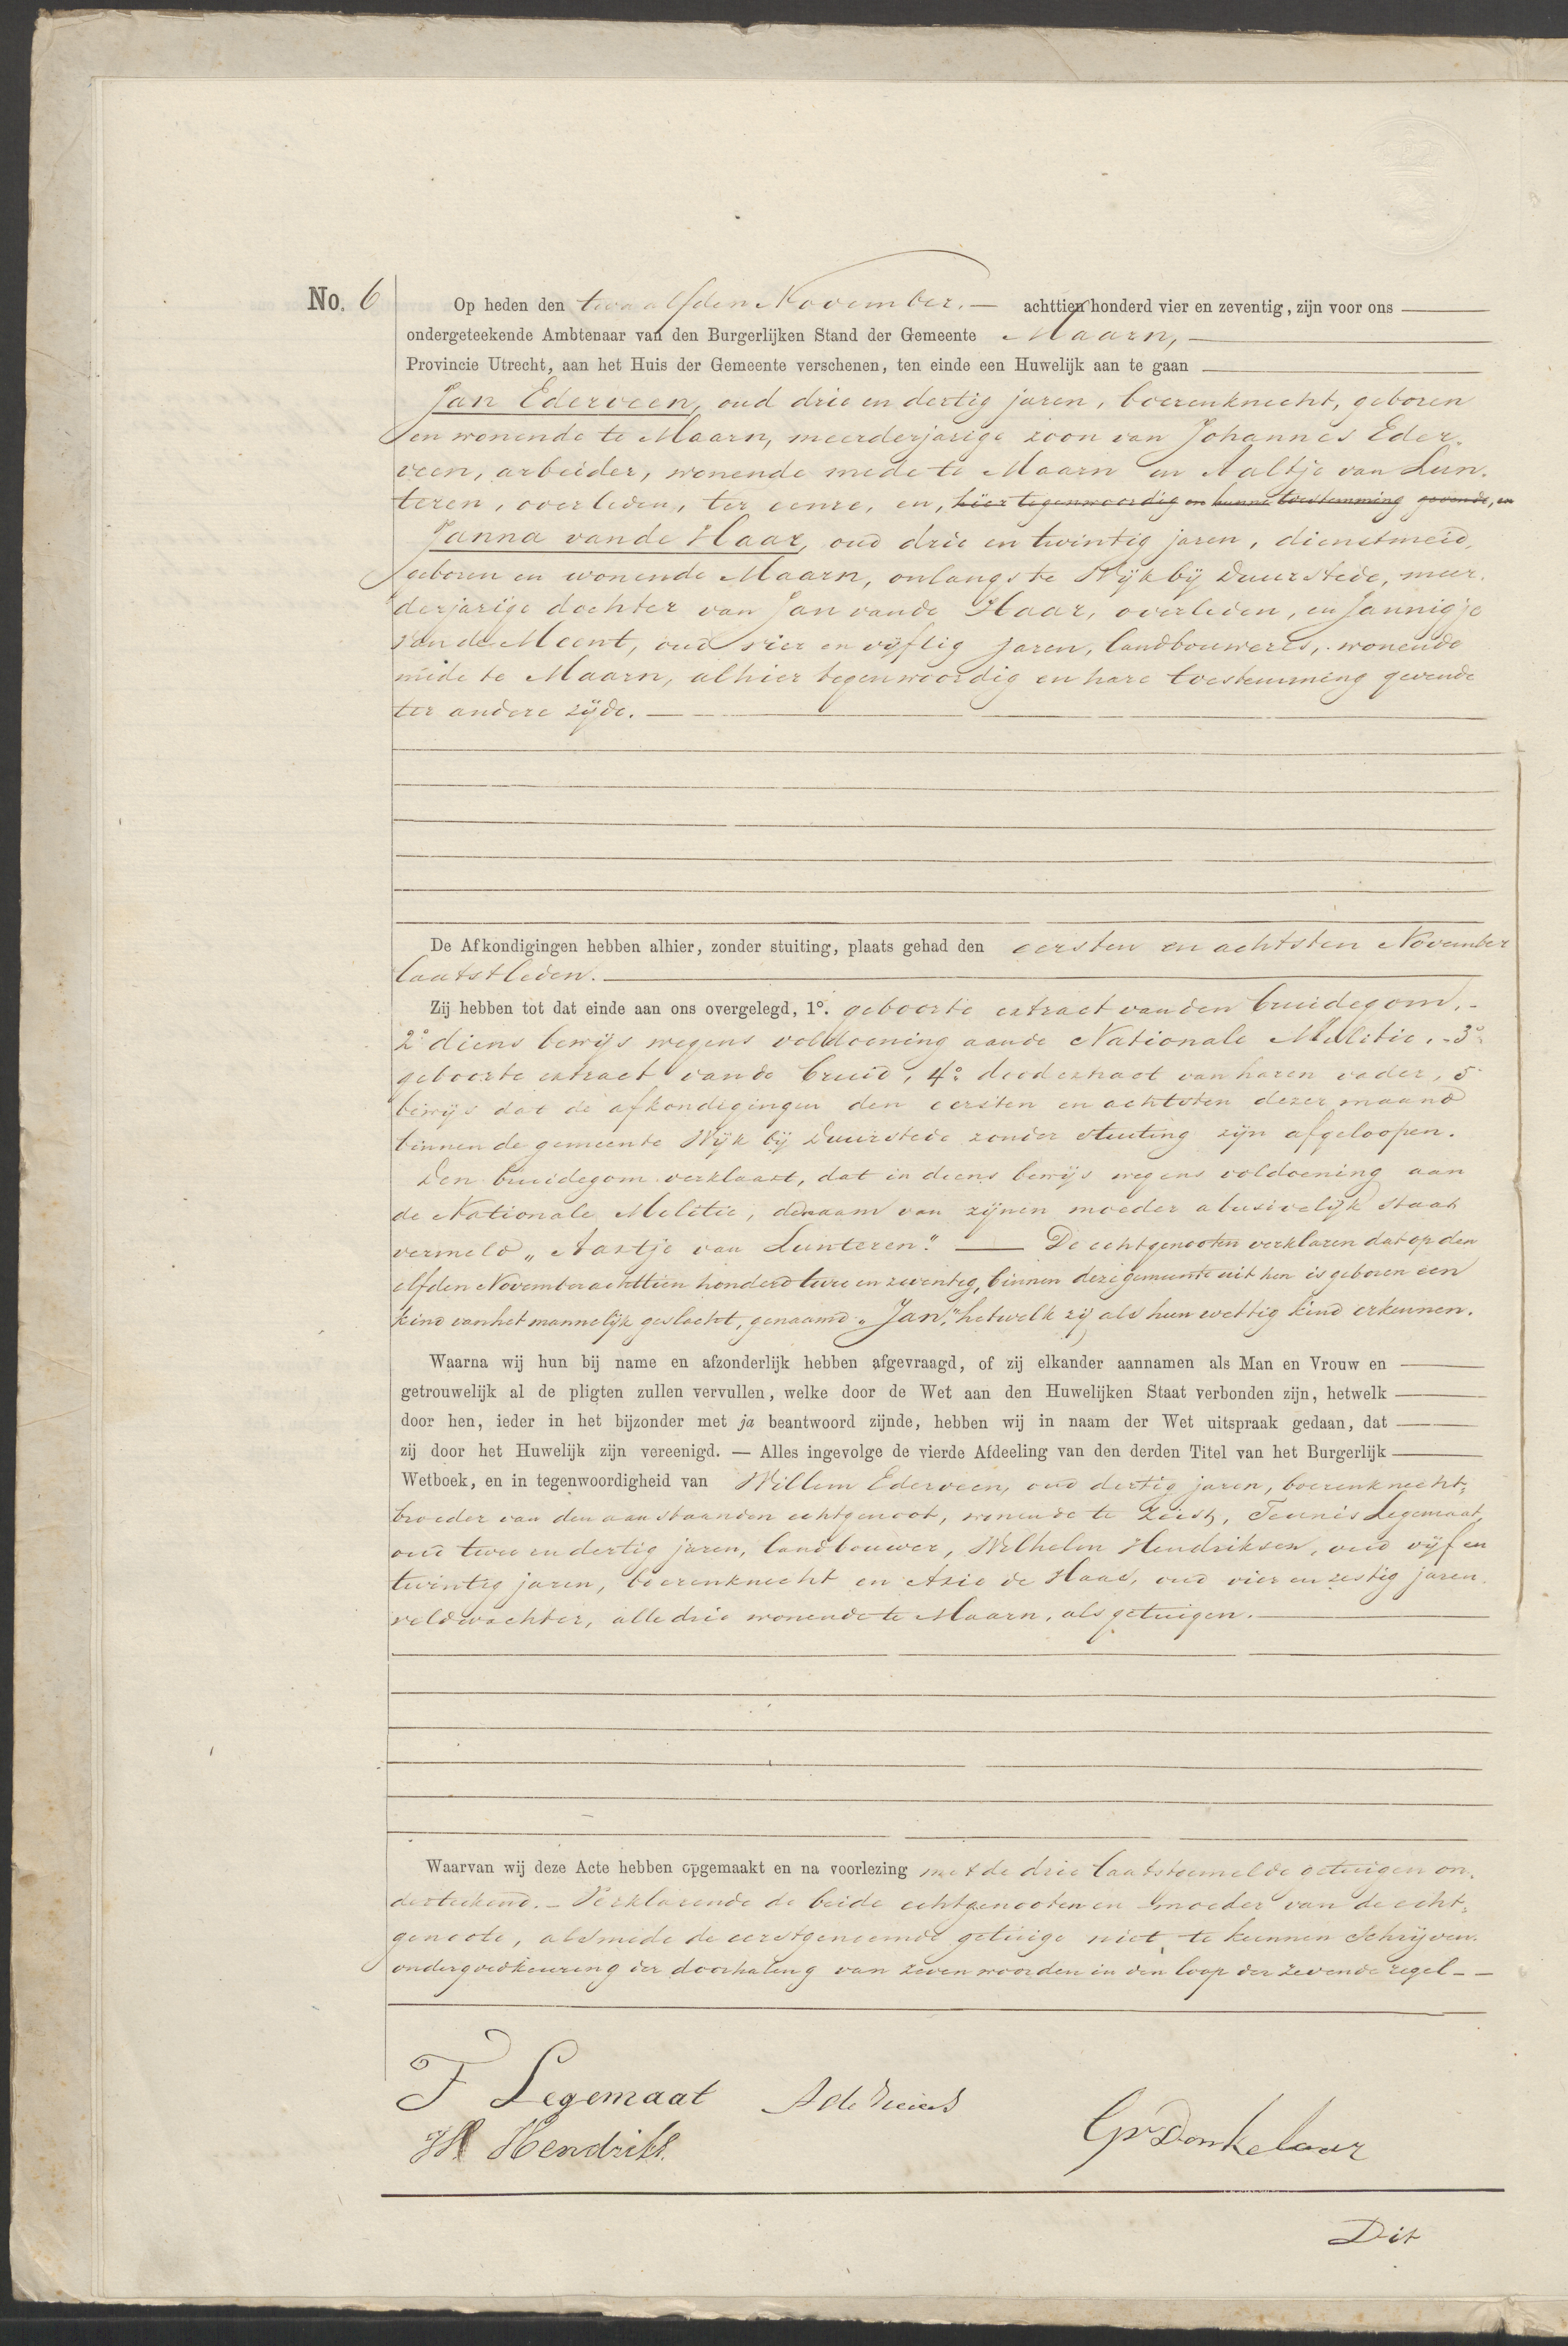 No. 6
Op heden den twaalfden November. — achttien honderd vier en zeventig, zijn voor ons
ondergeteekende Ambtenaar van den Burgerlijken Stand der Gemeente Maarn,
Provincie Utrecht, aan het Huis der Gemeente verschenen, ten einde een Huwelijk aan te gaan
Jan Ederveen, oud drie en dertig jaren, boerenknecht, geboren
en wonende te Maarn, meerderjarige zoon van Johannes Eder-
veen, arbeider, wonende mede te Maarn en Aaltje van Lun-
teren, overleden, ter eenre, en, hier tegenwoordig en hunne toestemming gevende, en
Janna vande Haar, oud drie en twintig jaren, dienstmeid,
geboren en wonende Maarn, onlangs te Wijk bij Duurstede, meer-
derjarige dochter van Jan vande Haar, overleden, en Jannigje
van de Meent, oud vier en vijftig jaren, landbouweres, wonende
mede te Maarn, alhier tegenwoordig en hare toestemming gevende
ter andere zijde.
De Afkondigingen hebben alhier, zonder stuiting, plaats gehad den eersten en achtsten November
laatstleden.
Zij hebben tot dat einde aan ons overgelegd, 1°. geboorte extract van den bruidegom, -
2° diens bewijs wegens voldoening aande Nationale Militie, - 3°
geboorte extract vande bruid, 4° dood extract van haren vader, 5
bewijs dat de afkondigingen den eersten en achtsten dezer maand
binnen de gemeente Wijk bij Duurstede zonder stuiting zijn afgeloopen.
Den bruidegom verklaart, dat in diens bewijs wegens voldoening aan
de Nationale Militie, de naam van zijnen moeder abusivelijk staat
vermeld „Aartje van Lunteren." — De echtgenooten verklaren dat op den
elfden November achttien honderd twee en zeventig, binnen deze gemeente uit hen is geboren een
kind van het mannelijk geslacht, genaamd „Jan," hetwelk zij als hun wettig kind erkennen.
Waarna wij hun bij name en afzonderlijk hebben afgevraagd, of zij elkander aannamen als Man en Vrouw en
getrouwelijk al de pligten zullen vervullen, welke door de Wet aan den Huwelijken Staat verbonden zijn, hetwelk
door hen, ieder in het bijzonder met ja beantwoord zijnde, hebben wij in naam der Wet uitspraak gedaan, dat
zij door het Huwelijk zijn vereenigd. — Alles ingevolge de vierde Afdeeling van den derden Titel van het Burgerlijk
Wetboek, en in tegenwoordigheid van Willem Ederveen, oud dertig jaren, boerenknecht,
broeder van den aanstaanden echtgenoot, wonende te Zeist, Teunis Legemaat,
oud twee en dertig jaren, landbouwer, Wilhelm Hendriksen, oud vijf en
twintig jaren, boerenknecht en Arie de Haas, oud vier en zestig jaren
veldwachter, alle drie wonende te Maarn, als getuigen.
Waarvan wij deze Acte hebben opgemaakt en na voorlezing met de drie laatstgemelde getuigen on-
derteekend. - Verklarende de beide echtgenooten en moeder van de echt-
genoote, alsmede de eerstgenoemde getuige niet te kunnen schrijven.
onder goedkeuring der doorhaling van zeven woorden in den loop der zevende regel - -
T Legemaat A de Haas
W Hendriks. GvDonkelaar
Dit